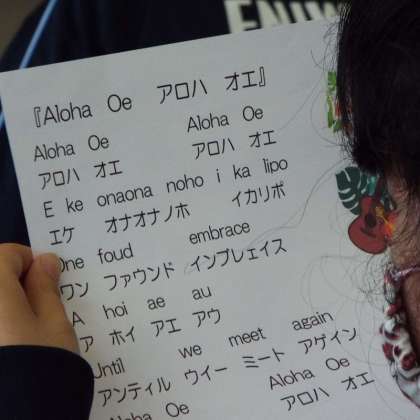 『Aloha Oe アロハ オエ』
Aloha Oe Aloha Oe
アロハ オエ アロハ オエ
E ke onaona noho i ka lipo
エケ オナオナノホ イカリポ
One foud embrace
ワン ファウンド インブレェイス
A hoi ae au
ア ホイ アエ アウ
Until we meet again
アンティル ウイー ミート アゲイン
Aloha Oe Aloha Oe
アロハ オエ